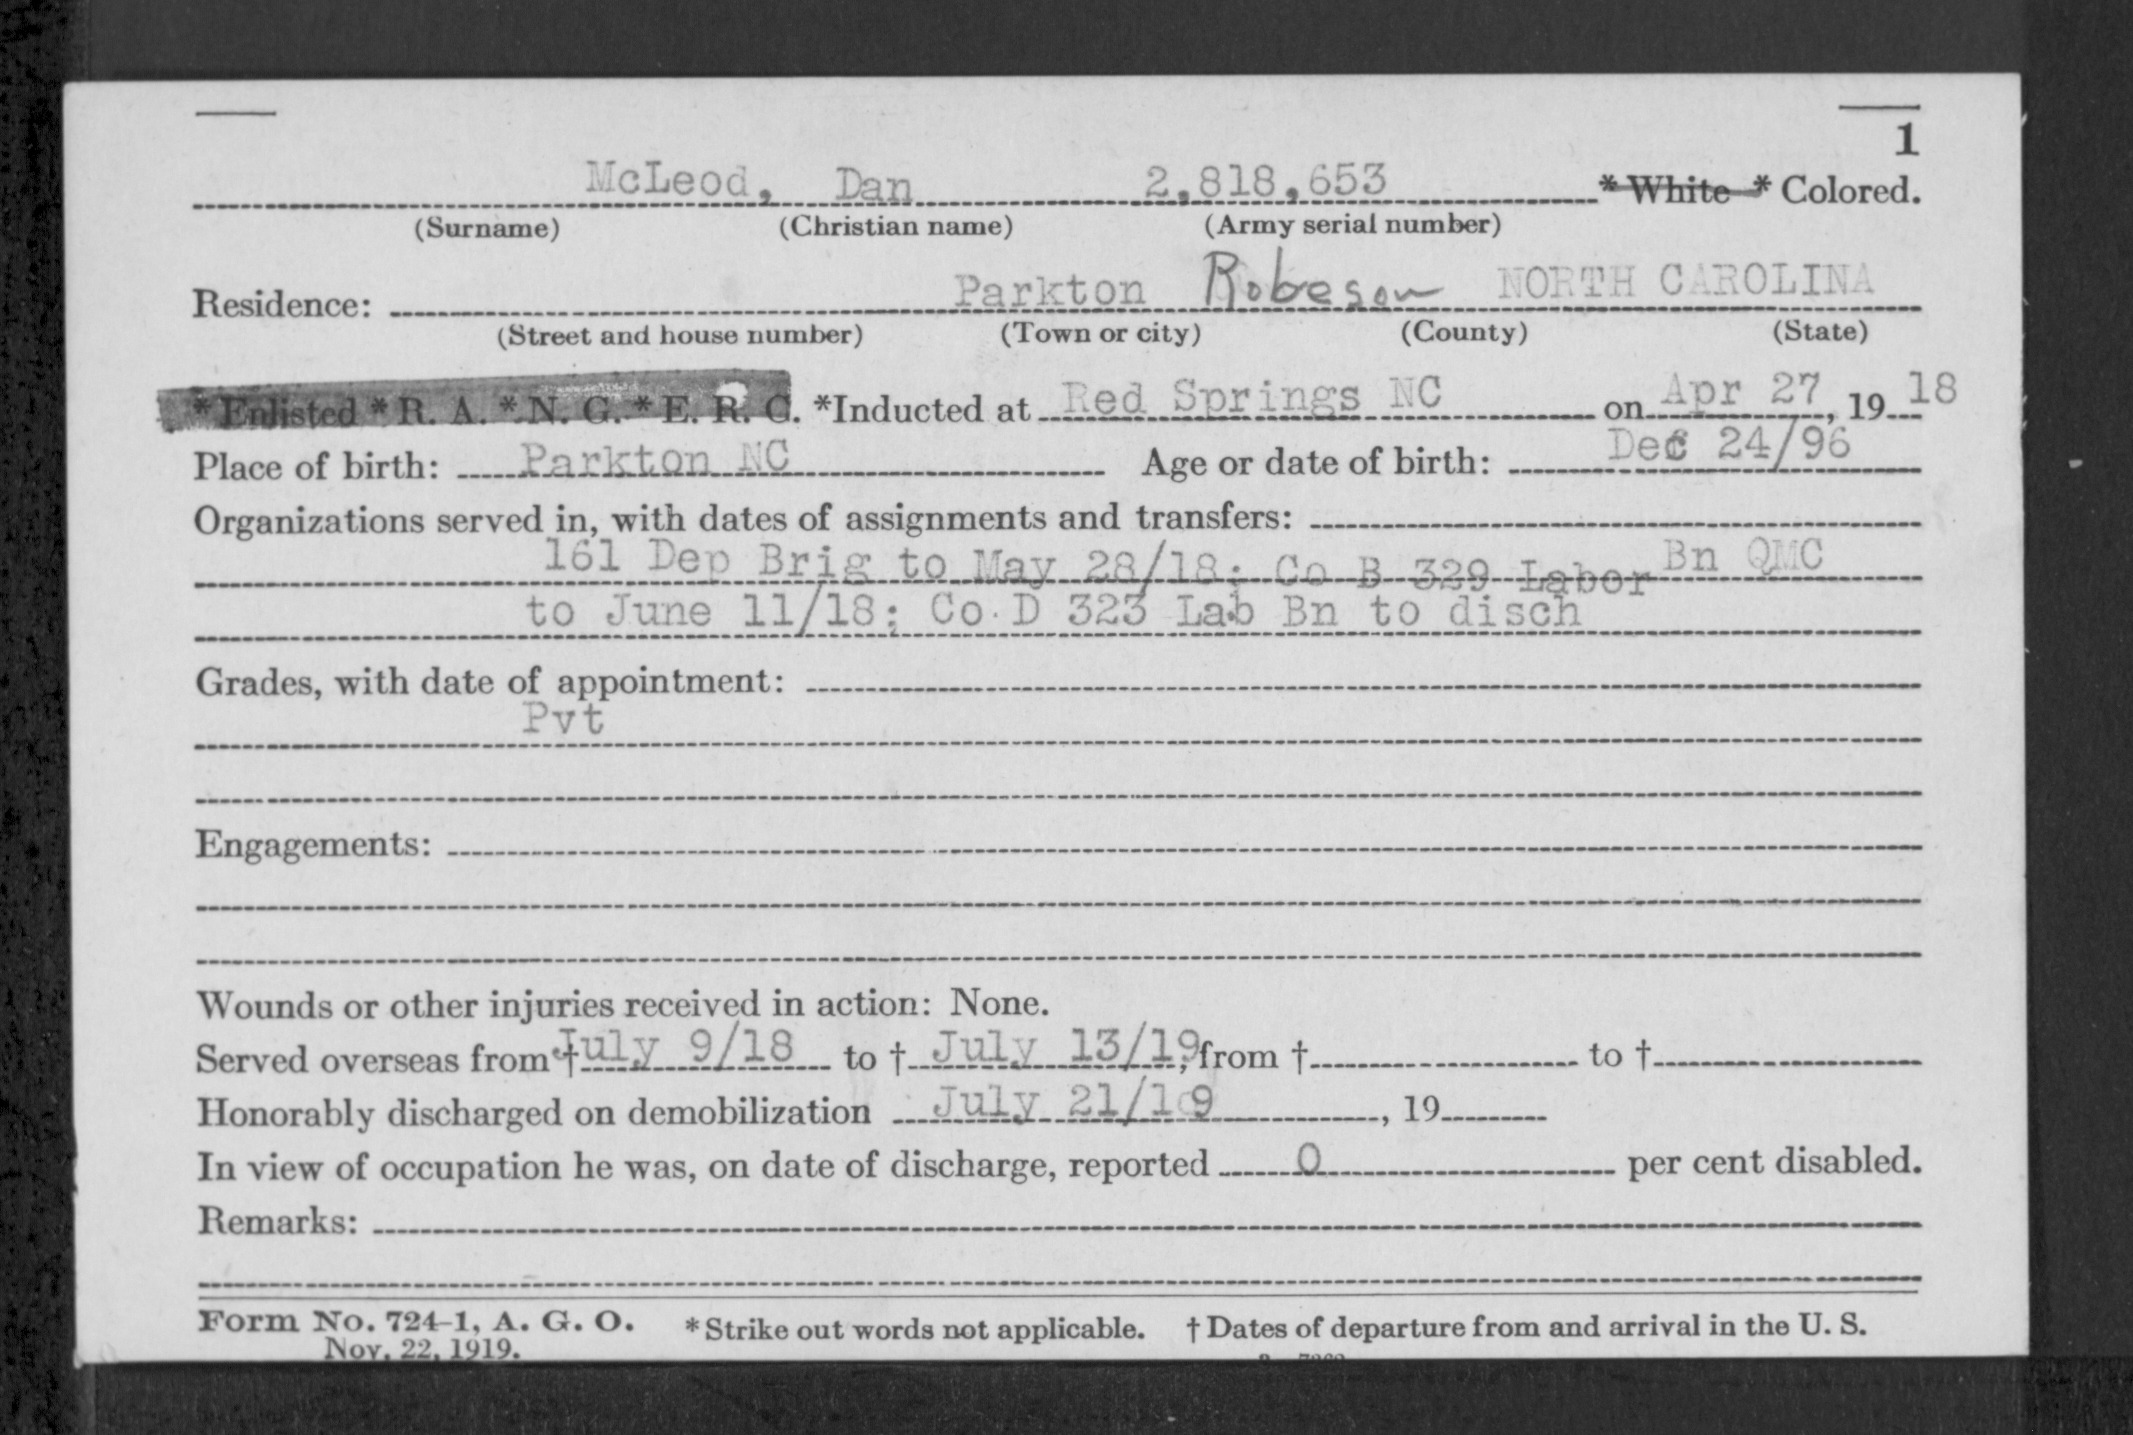 1
McLeod, Dan 2,818,653 * White * Colored.
(Surname) (Christian name) (Army serial number)
Residence: Parkton Robeson NORTH CAROLINA
(Street and house number) (Town or city) (County) (State)
* Enlisted * R. A. * N. G. * E. R. C. *Inducted at Red Springs NC on Apr 27, 1918
Place of birth: Parkton NC Age or date of birth: Dec 24/96
Organizations served in, with dates of assignments and transfers:
161 Dep Brig to May 28/18; Co B 329 Labor Bn QMC
to June 11/18; Co. D 323 Lab Bn to disch
Grades, with date of appointment:
Pvt
Engagements:
Wounds or other injuries received in action: None.
Served overseas from † July 9/18 to † July 13/19, from † to †
Honorably discharged on demobilization July 21/19, 19
In view of occupation he was, on date of discharge, reported 0 per cent disabled.
Remarks:
Form No. 724-1, A. G. O. * Strike out words not applicable. † Dates of departure from and arrival in the U. S.
Nov. 22, 1919.